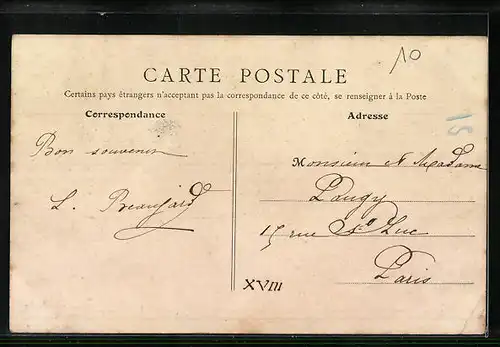 10
CARTE POSTALE
Certains pays étrangers n'acceptant pas la correspondance de ce côté, se renseigner à la Poste
Correspondance
Bon souvenir
L. Beaujard
Adresse
15
Monsieur et Madame
Laugy
15 rue Luc
Paris
XVIII